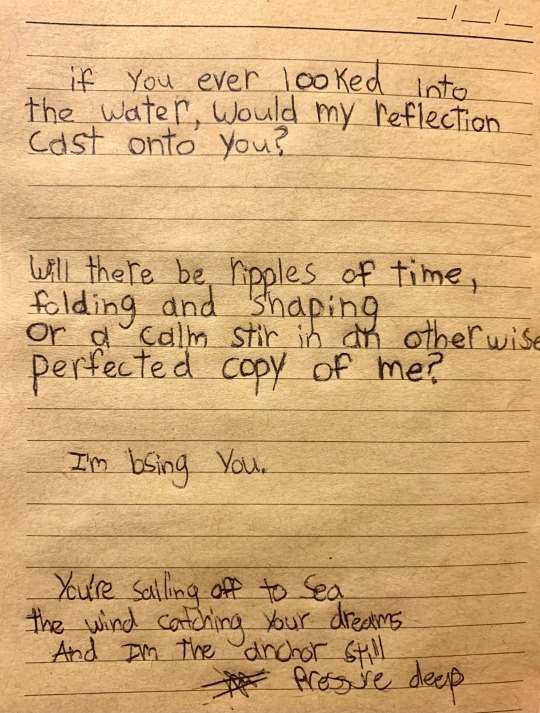 __/__/__
if you ever looked into
the water, would my reflection
cast onto you?
Will there be ripples of time,
folding and shaping
or a calm stir in an otherwise
perfected copy of me?
I'm losing you.
You're sailing off to sea
the wind catching your dreams
And I'm the anchor still
pressure deep